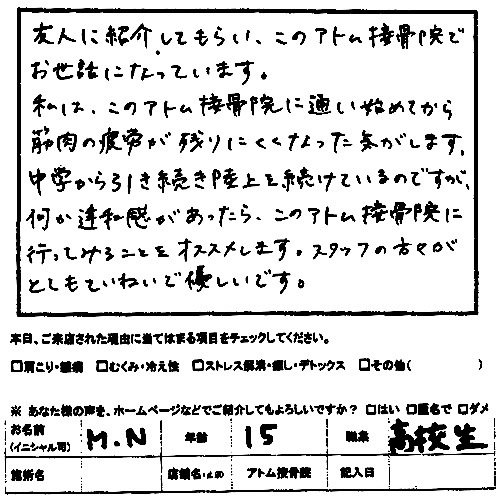 友人に紹介してもらい、このアトム接骨院で
お世話になっています。
私は、このアトム接骨院に通い始めてから
筋肉の疲労が残りにくくなった気がします。
中学から引き続き陸上を続けているのですが、
何か違和感があったら、このアトム接骨院に
行ってみることをオススメします。スタッフの方々が
とてもていねいで優しいです。
本日、ご来店された理由に当てはまる項目をチェックしてください。
□肩こり・腰痛 □むくみ・冷え性 □ストレス解消・癒し・デトックス □その他( )
※ あなた様の声を、ホームページなどでご紹介してもよろしいですか? □はい □匿名で □ダメ
お名前 (イニシャル可) M.N 年齢 15 職業 高校生
施術名 店舗名 アトム接骨院 記入日